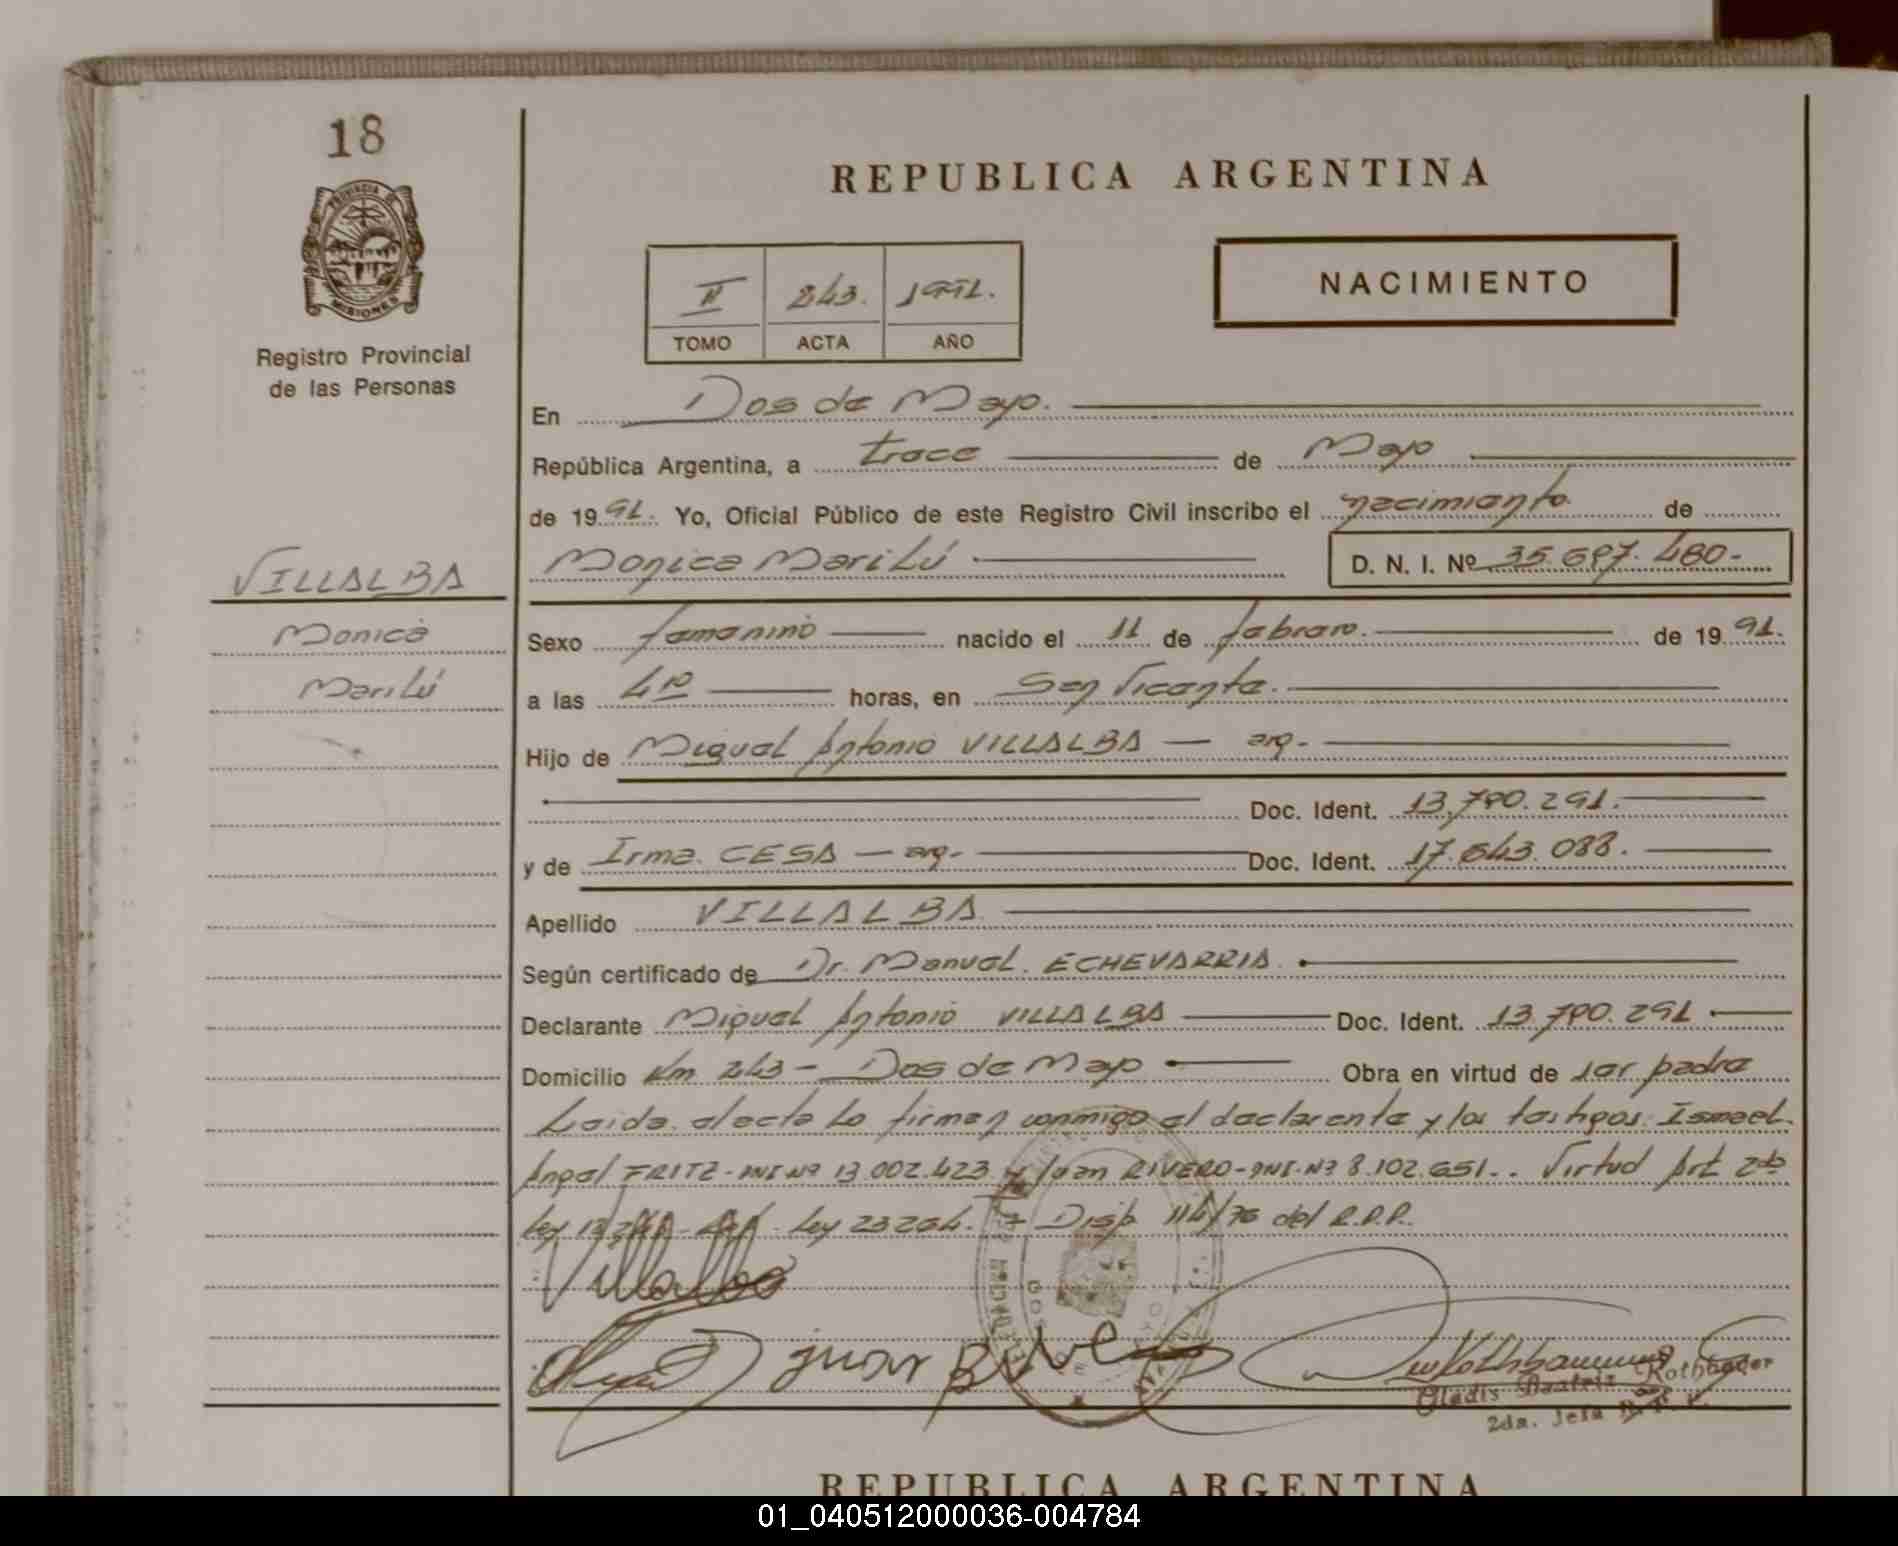 18
PROVINCIA DE
MISIONES
Registro Provincial
de las Personas
VILLALBA
Monica
Marilú
REPUBLICA ARGENTINA
NACIMIENTO
II 243. 1991.
TOMO ACTA AÑO
En Dos de Mayo.
República Argentina, a trece de Mayo
de 1991. Yo, Oficial Público de este Registro Civil inscribo el nacimiento de
Monica Marilú D. N. I. Nº 35.697.480-
Sexo femenino nacido el 11 de febrero. de 1991.
a las 4 10 horas, en San Vicente.
Hijo de Miguel Antonio VILLALBA — arg.
Doc. Ident. 13.790.291.
y de Irma. CESA — arg. Doc. Ident. 17.643.088.
Apellido VILLALBA
Según certificado de Dr. Manuel. ECHEVARRIA.
Declarante Miguel Antonio VILLALBA Doc. Ident. 13.790.291
Domicilio Km 243 - Dos de Mayo Obra en virtud de ser padre
Leida el acta lo firman conmigo el declarante y los testigos: Ismael
Angel FRITZ - DNI. Nº 13.002.423 y Juan RIVERO - DNI. Nº 8.102.651.. Virtud Art 2do
Ley Ley 23264. + Disp. 114/76 del R.P.P.
Villalba
juan
Gladis Beatriz Rothbauer
2da. Jefa R. P. P.
REPUBLICA ARGENTINA
01_040512000036-004784